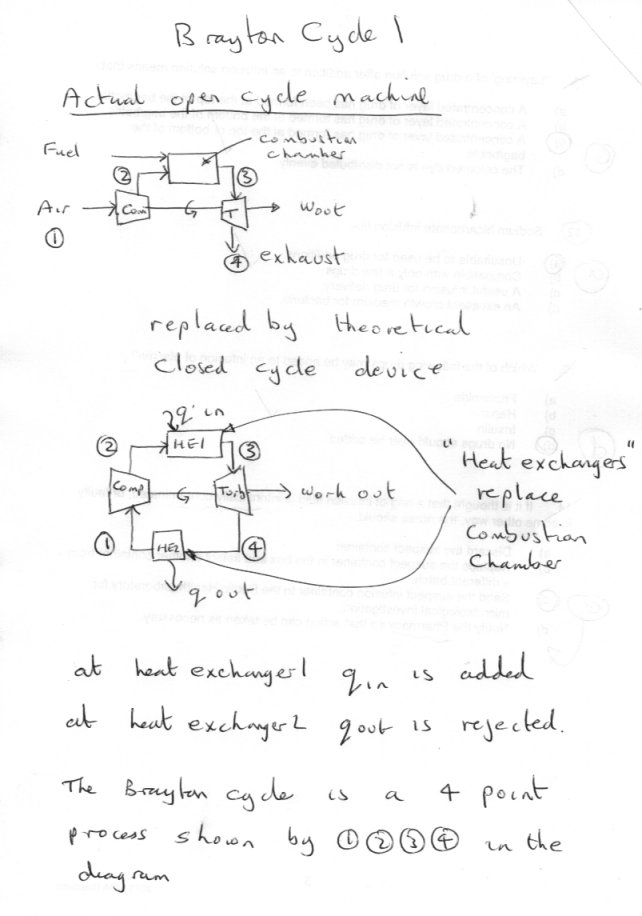 Brayton Cycle 1
Actual open cycle machine
Fuel
combustion
chamber
②
③
Air
Com
T
Wout
①
④ exhaust
replaced by theoretical
closed cycle device
q in
② HE1 ③
"Heat exchangers"
Comp
Turb
work out
replace
① HE2 ④
Combustion
Chamber
q out
at heat exchanger 1 qin is added
at heat exchanger 2 q out is rejected.
The Brayton cycle is a 4 point
process shown by ① ② ③ ④ in the
diagram